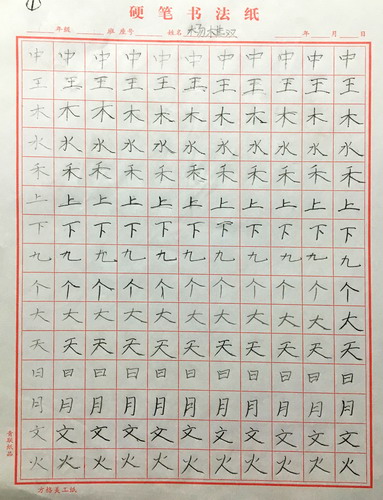 ①
硬笔书法纸
年级 班 座号 姓名 年 月 日
中中中中中中中中中中中
王王王王王王王王王王王
木木木木木木木木木木木
水水水水水水水水水水水
禾禾禾禾禾禾禾禾禾禾禾
上上上上上上上上上上上
下下下下下下下下下下下
九九九九九九九九九九九
个个个个个个个个个个个
大大大大大大大大大大大
天天天天天天天天天天天
日日日日日日日日日日日
月月月月月月月月月月月
文文文文文文文文文文文
火火火火火火火火火火火